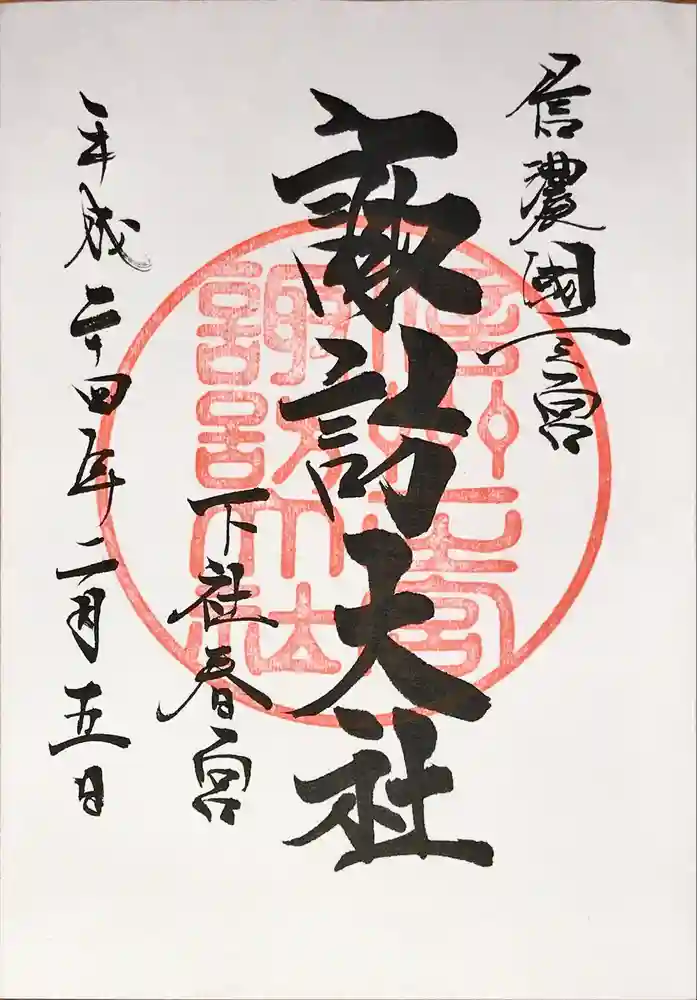 信濃國一之宮
諏訪大社
下社春宮
平成二十四年二月五日